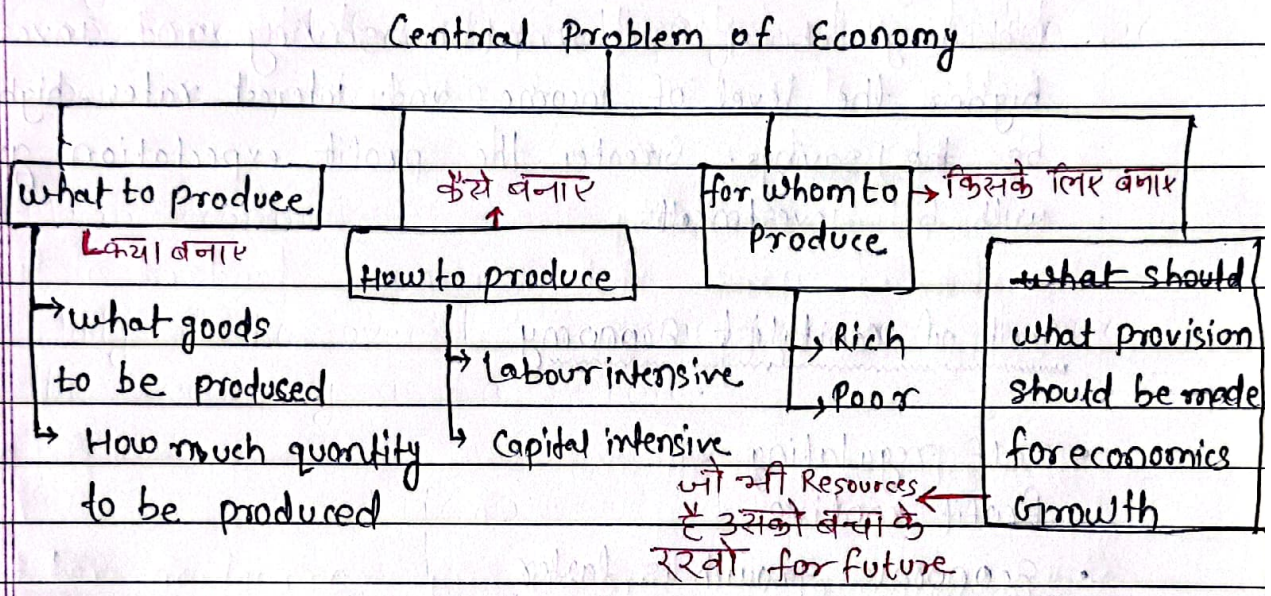 Central Problem of Economy
What to produce
क्या बनाए
→ what goods
to be prodused
→ How much quantity
to be produced
कैसे बनाए
How to produce
→ Labour intensive
→ Capital intensive
for whom to → किसके लिए बनाए
Produce
→ Rich
→ Poor
what should
what provision
should be made
for economics
Growth
जो भी Resources
है उसको बचा के
रखो for future